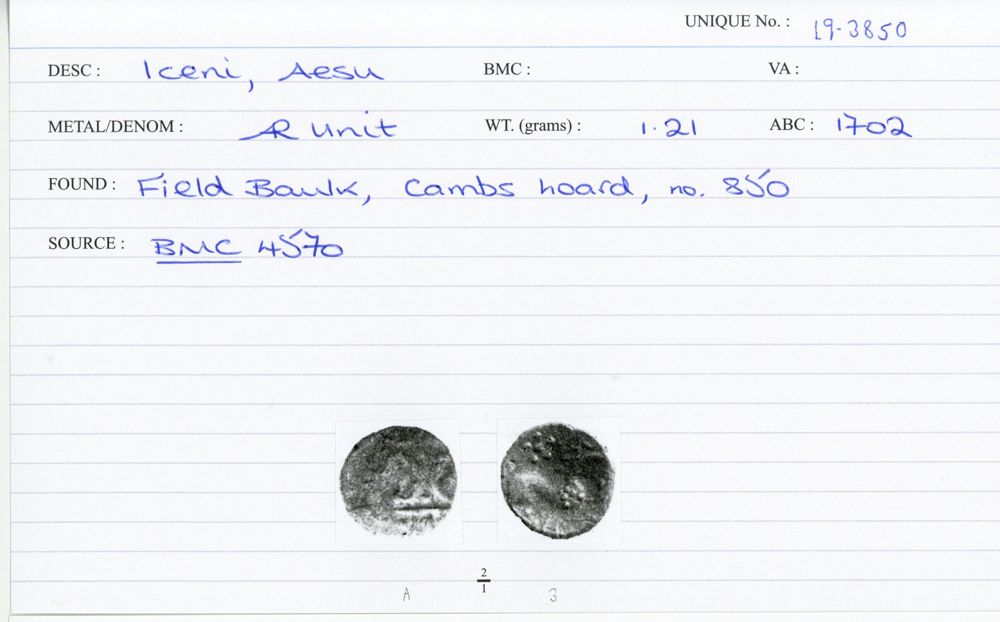 UNIQUE No. : 19-3850
DESC : Iceni, Aesu BMC : VA :
METAL/DENOM : AR Unit WT. (grams) : 1.21 ABC : 1702
FOUND : Field Baulk, Cambs hoard, no. 850
SOURCE : BMC 4570
2
1
A 3